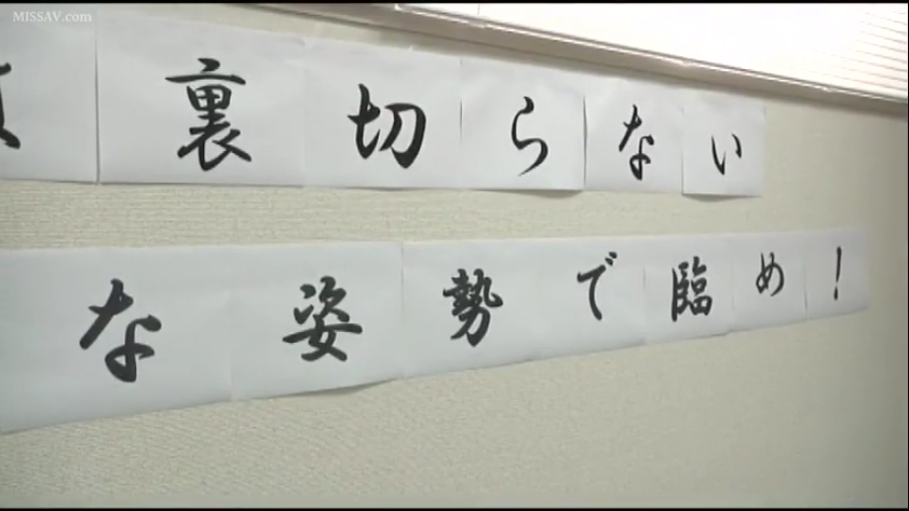 MISSAV.com
裏切らない
な姿勢で臨め!